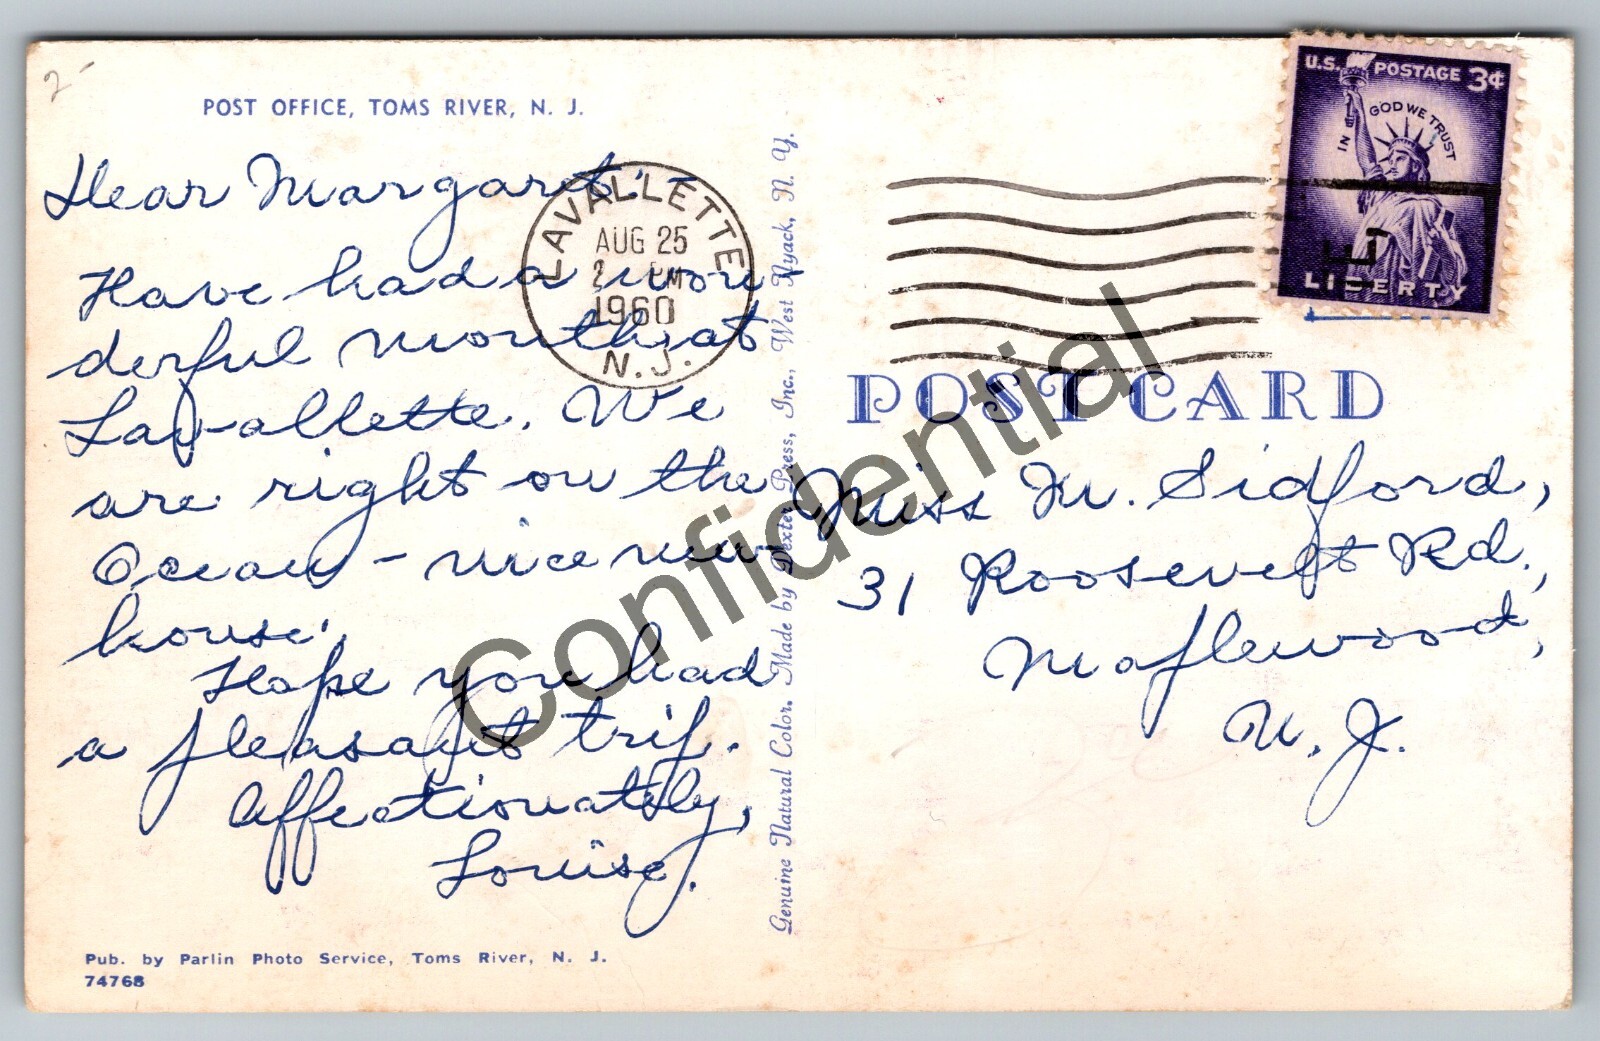 2-
POST OFFICE, TOMS RIVER, N. J.
Dear Margaret:-
Have had a won-
derful month at
Lavallette. We
are right on the
Ocean - nice new
house.
Hope you had
a pleasant trip.
Affectionately,
Louise.
Pub. by Parlin Photo Service, Toms River, N. J.
74768
LAVALLETTE
AUG 25
2 PM
1960
N. J.
Genuine Natural Color. Made by Dexter Press, Inc., West Nyack, N. Y.
U.S. POSTAGE 3¢
IN GOD WE TRUST
LIBERTY
POST CARD
Miss M. Sidford,
31 Roosevelt Rd.,
Maplewood,
N. J.
Confidential